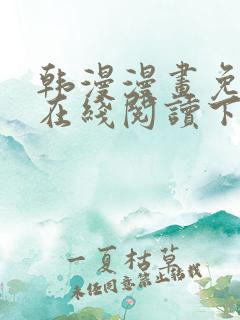 韩漫漫畫免
在綫閱讀下
一夏枯草
未经同意禁止转载